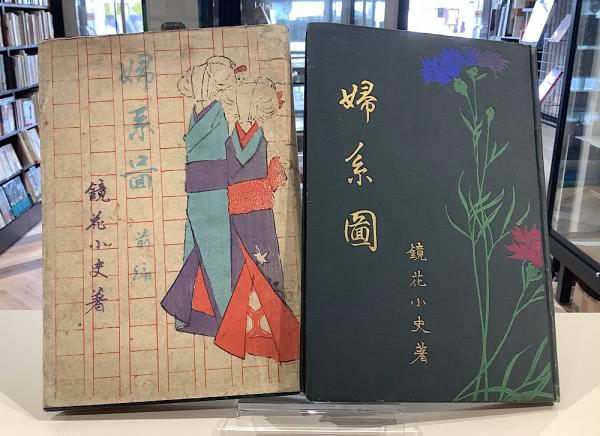 婦系啚
前編
鏡花小史著
婦系圖
鏡花小史著